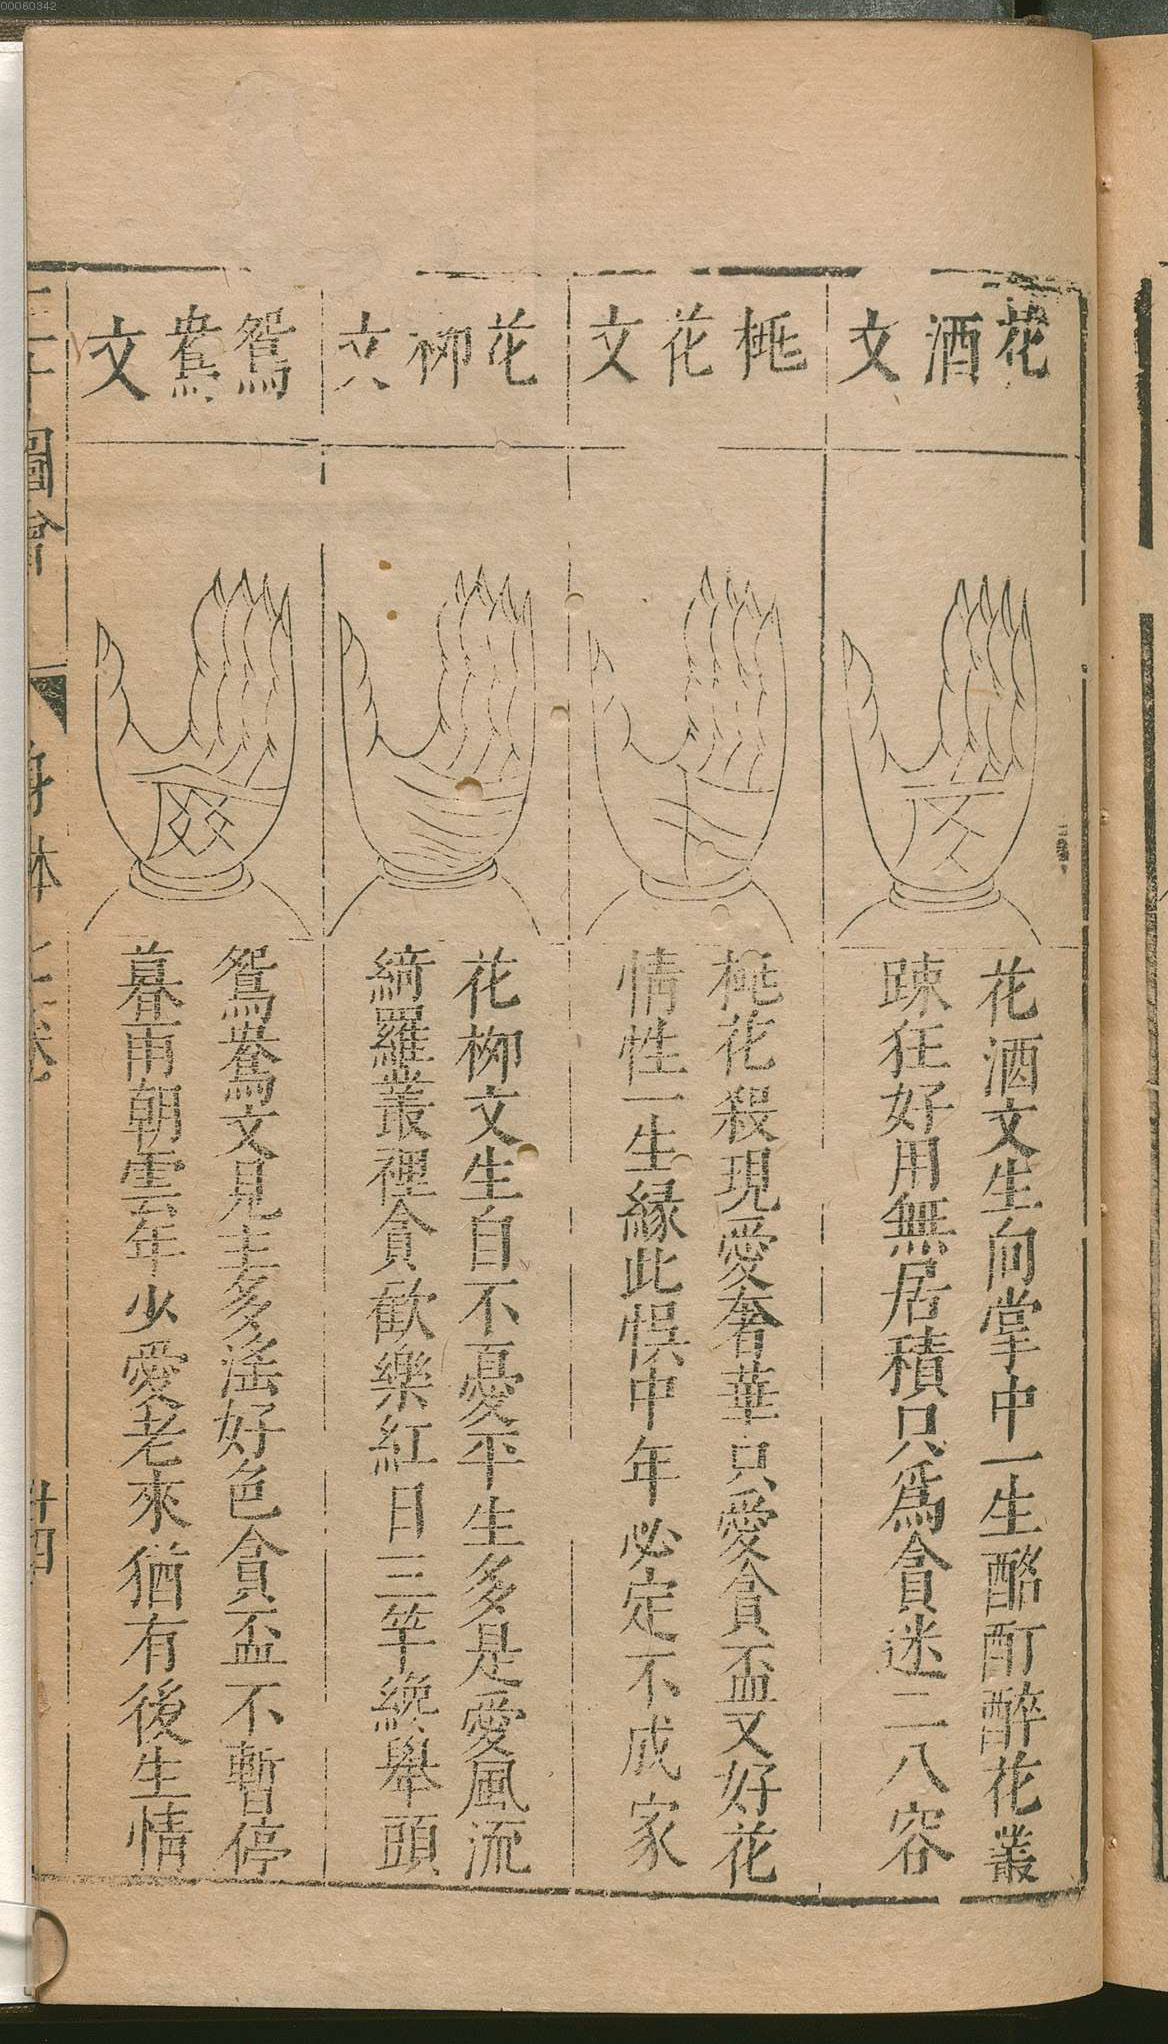 00080342
花酒文
花酒文生向掌中一生酩酊醉花叢
踈狂好用無居積只爲貪迷二八容
桃花文
桃花殺現愛奢華只愛貪盃又好花
情性一生緣此悞中年必定不成家
花柳文
花柳文生自不憂平生多是愛風流
綺羅叢裡貪歡樂紅日三竿纔舉頭
鴛鴦文
鴛鴦文見主多滛好色貪盃不暫停
暮雨朝雲年少愛老來猶有後生情
三才圖會
身体
卷
廿四